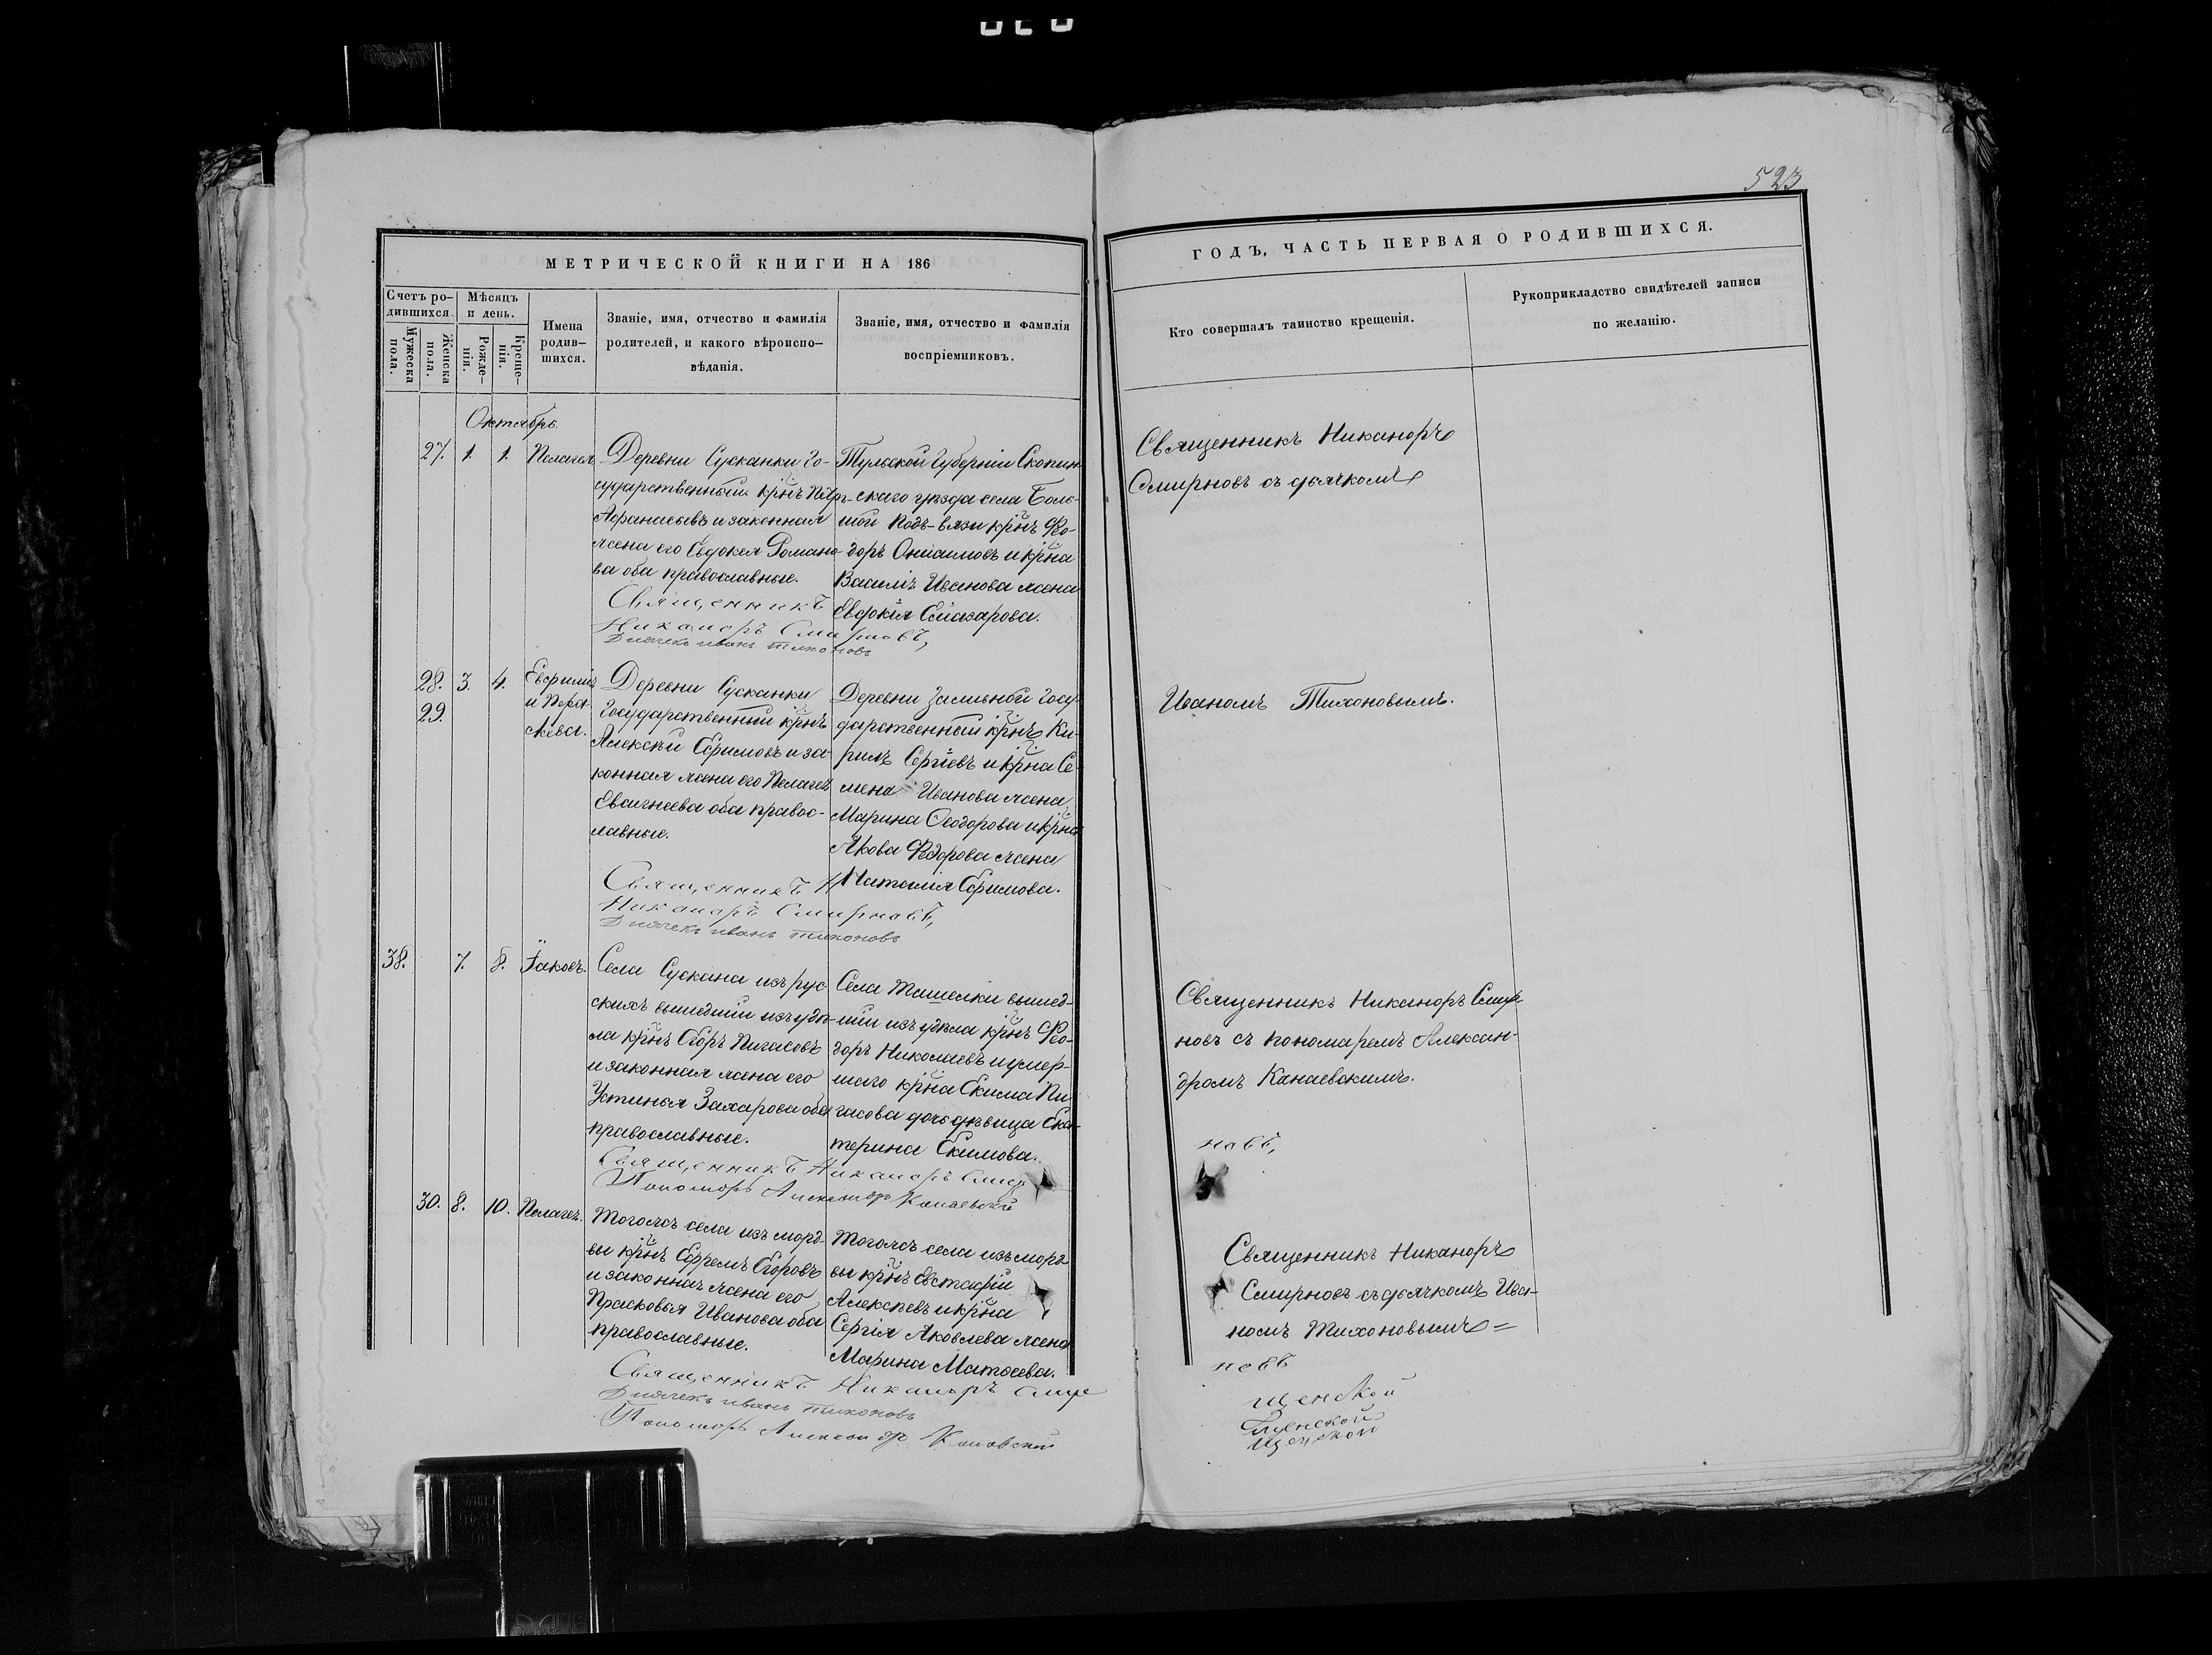 523
МЕТРИЧЕСКОЙ КНИГИ НА 186
Счетъ ро-
дившихся.
Мужеска
пола.
Женска
пола.
Мѣсяцъ
и день.
Рожде-
нія.
Креще-
нія.
Имена
родив-
шихся.
Званіе, имя, отчество и фамилія
родителей, и какого вѣроиспо-
вѣданія.
Званіе, имя, отчество и фамилія
воспріемниковъ.
ГОДЪ, ЧАСТЬ ПЕРВАЯ О РОДИВШИХСЯ.
Кто совершалъ таинство крещенія.
Рукоприкладство свидѣтелей записи
по желанію.
Октябрь.
27. 1. 1. Пелагея
Деревни Сусканки Го-
сударственный крнъ Петръ
Афанасьевъ и законная
жена его Евдокея Романо-
ва оба православные.
Священникъ
Никаноръ Смирновъ,
Дьячекъ иванъ тихоновъ
Тульской Губерніи Скопин-
скаго уѣзда села Боль-
шой Подъ-вязи крнъ Фео-
доръ Онисимовъ и крна
Василія Иванова жена
Евфокія Елиазарова.
Священникъ Никаноръ
Смирновъ съ дьячкомъ
28. 3. 4. Евфимія
29. и Парас-
кева.
Деревни Сусканки
Государственный крнъ
Алексѣй Ефимовъ и за-
конная жена его Пелагея
Евсигнеева оба правос-
лавные.
Священникъ
Никаноръ Смирновъ,
Дьячекъ иванъ тихоновъ
Деревни Госу-
дарственный крнъ Ки-
рилъ Сергіевъ и крна Се-
мена Иванова жена
Марина Ѳеодорова и крна
Якова Федорова жена
Наталія Ефимова.
Иваномъ Тихоновымъ.
38. 7. 8. Іаковъ.
Села Сускана изъ рус-
скихъ вышедшій изъ удѣ-
ла крнъ Егоръ Пигасовъ
и законная жена его
Устинья Захарова оба
православные.
Священникъ Никаноръ Смир
Пономарь Александръ Канаевскій
Села Ташелки вышед-
шій изъ удѣла крнъ Фео-
доръ Николаевъ и умер-
шаго крна Екима Пи-
гасова дочь дѣвица Ека-
терина Екимова.
Священникъ Никаноръ Смир-
новъ съ пономаремъ Алексан-
дромъ Канаевскимъ.
новъ,
30. 8. 10. Пелагея.
Тогоже села изъ морд-
вы крнъ Ефремъ Егоровъ
и законная жена его
Прасковья Иванова оба
православные.
Священникъ Никаноръ Смир
Дьячекъ иванъ тихоновъ
Пономарь Александръ Канаевскій
Тогоже села изъ морд-
вы крнъ Евстафій
Алексѣевъ и крна
Сергія Яковлева жена
Марина Матвеева.
Священникъ Никаноръ
Смирновъ съ дьячкомъ Ива-
номъ Тихоновымъ=
новъ